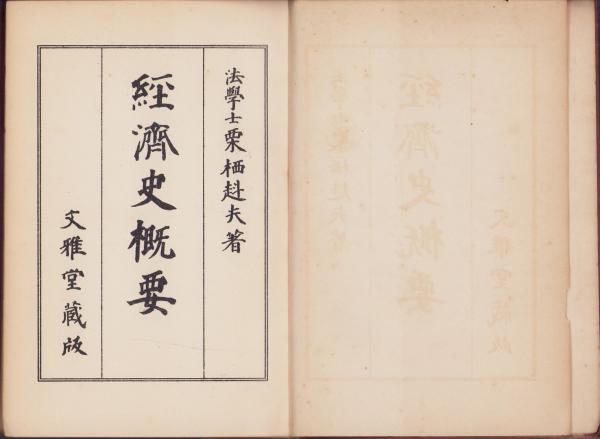 法學士 栗栖赳夫著
經濟史概要
文雅堂蔵版